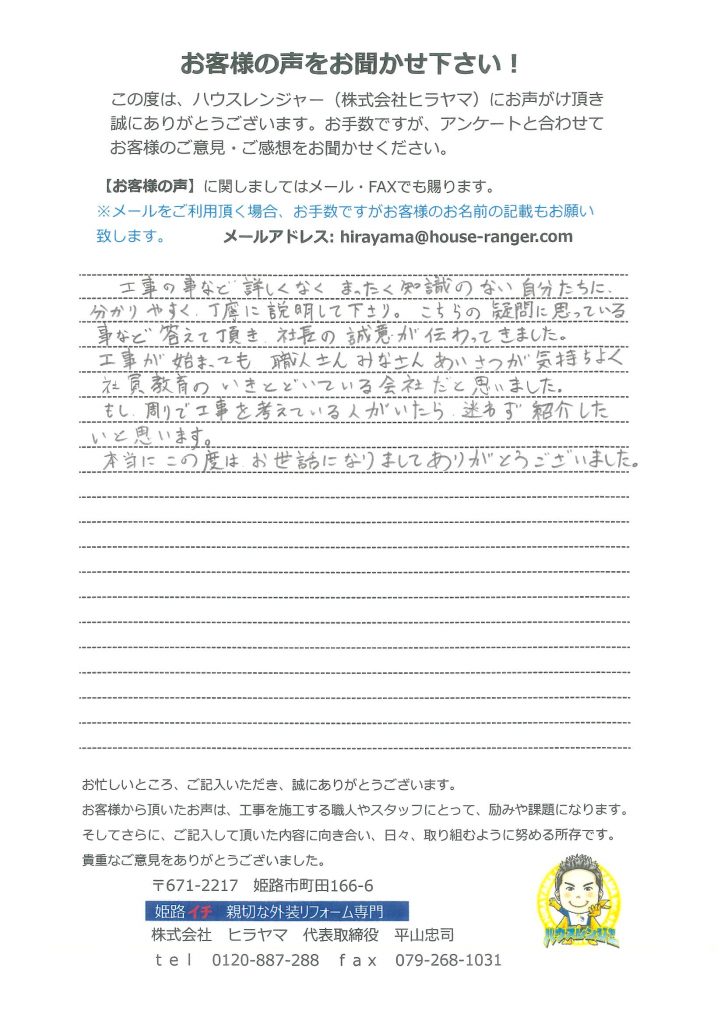 お客様の声をお聞かせ下さい！
この度は、ハウスレンジャー（株式会社ヒラヤマ）にお声がけ頂き
誠にありがとうございます。お手数ですが、アンケートと合わせて
お客様のご意見・ご感想をお聞かせください。
【お客様の声】に関しましてはメール・FAXでも賜ります。
※メールをご利用頂く場合、お手数ですがお客様のお名前の記載もお願い
致します。 メールアドレス: hirayama@house-ranger.com
工事の事など 詳しくなく まったく知識のない 自分たちに、
分かりやすく、丁寧に説明して下さり。こちらの 疑問に思っている
事など 答えて頂き、社長の 誠意が 伝わってきました。
工事が 始まっても 職人さん みなさん あいさつが 気持ちよく
社員教育の いきとどいている会社だと思いました。
もし、周りで工事を考えている人がいたら、迷わず 紹介した
いと思います。
本当に この度は お世話になりましてありがとうございました。
お忙しいところ、ご記入いただき、誠にありがとうございます。
お客様から頂いたお声は、工事を施工する職人やスタッフにとって、励みや課題になります。
そしてさらに、ご記入して頂いた内容に向き合い、日々、取り組むように努める所存です。
貴重なご意見をありがとうございました。
〒671-2217 姫路市町田166-6
姫路イチ 親切な外装リフォーム専門
株式会社 ヒラヤマ 代表取締役 平山忠司
ｔｅｌ 0120-887-288 ｆａｘ 079-268-1031
ハウスレンジャー